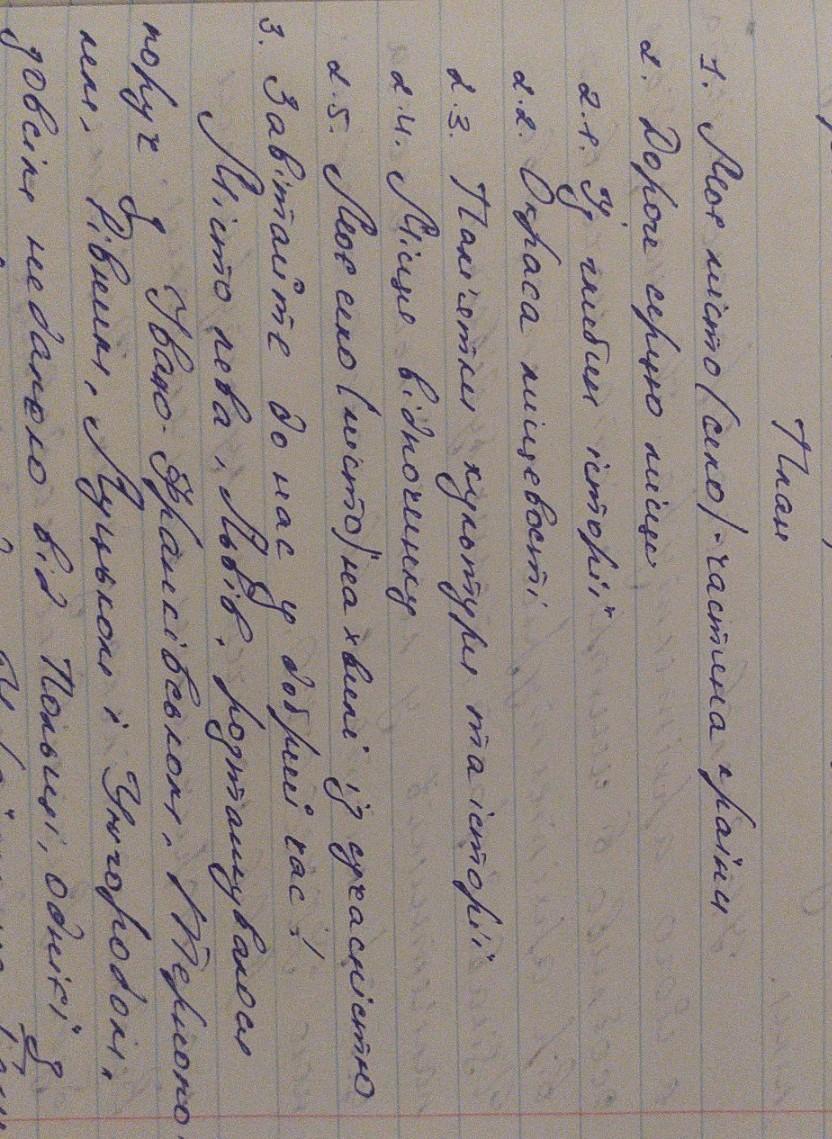 План
1. Моє місто (село) - частина країни
2. Дороге серцю місце
2.1. У глибин історії
2.2. Окраса місцевості
2.3. Пам'ятки культури та історії
2.4. Місце відпочинку
2.5. Моє село (місто) на хвилі із сучасністю
3. Завітайте до нас у добрий час!
Місто лева, Львів, розташувалося
поруч з Івано-Франківськом, Терноно-
лем, Рівним, Луцьком і Ужгородом,
зовсім недалеко від Польщі, однієї з